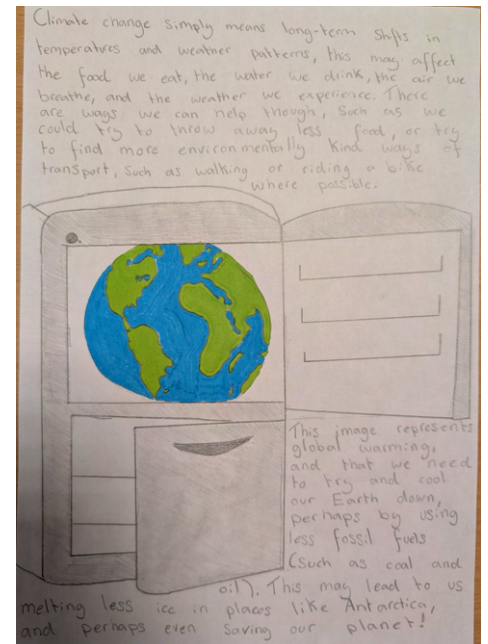 Climate change simply means long-term shifts in
temperatures and weather patterns, this may affect
the food we eat, the water we drink, the air we
breathe, and the weather we experience. There
are ways we can help though, such as we
could try to throw away less food, or try
to find more environmentally kind ways of
transport, such as walking or riding a bike
where possible.
This image represents
global warming,
and that we need
to try and cool
our Earth down,
perhaps by using
less fossil fuels
(such as coal and
oil). This may lead to us
melting less ice in places like Antarctica,
and perhaps even saving our planet!